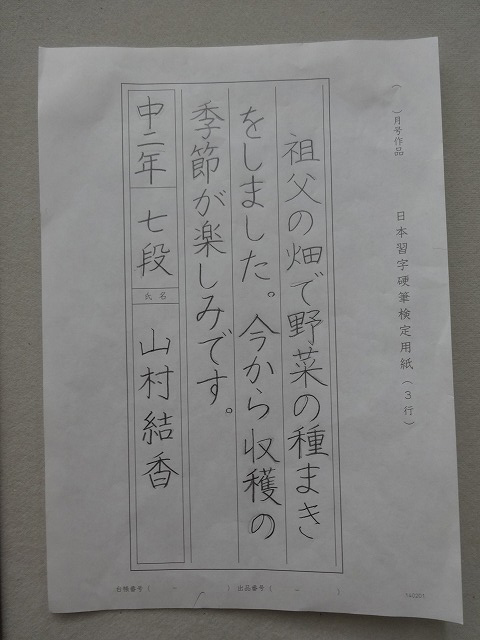 (　)月号作品
日本習字硬筆検定用紙(3行)
祖父の畑で野菜の種まき
をしました。今から収穫の
季節が楽しみです。
中二年 七段 氏名 山村結香
台帳番号(　-　) 出品番号(　-　)